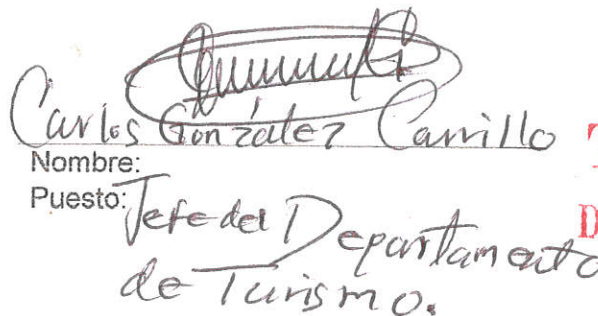 Carlos González Carrillo
Nombre:
Puesto: Jefe del Departamento
de Turismo.